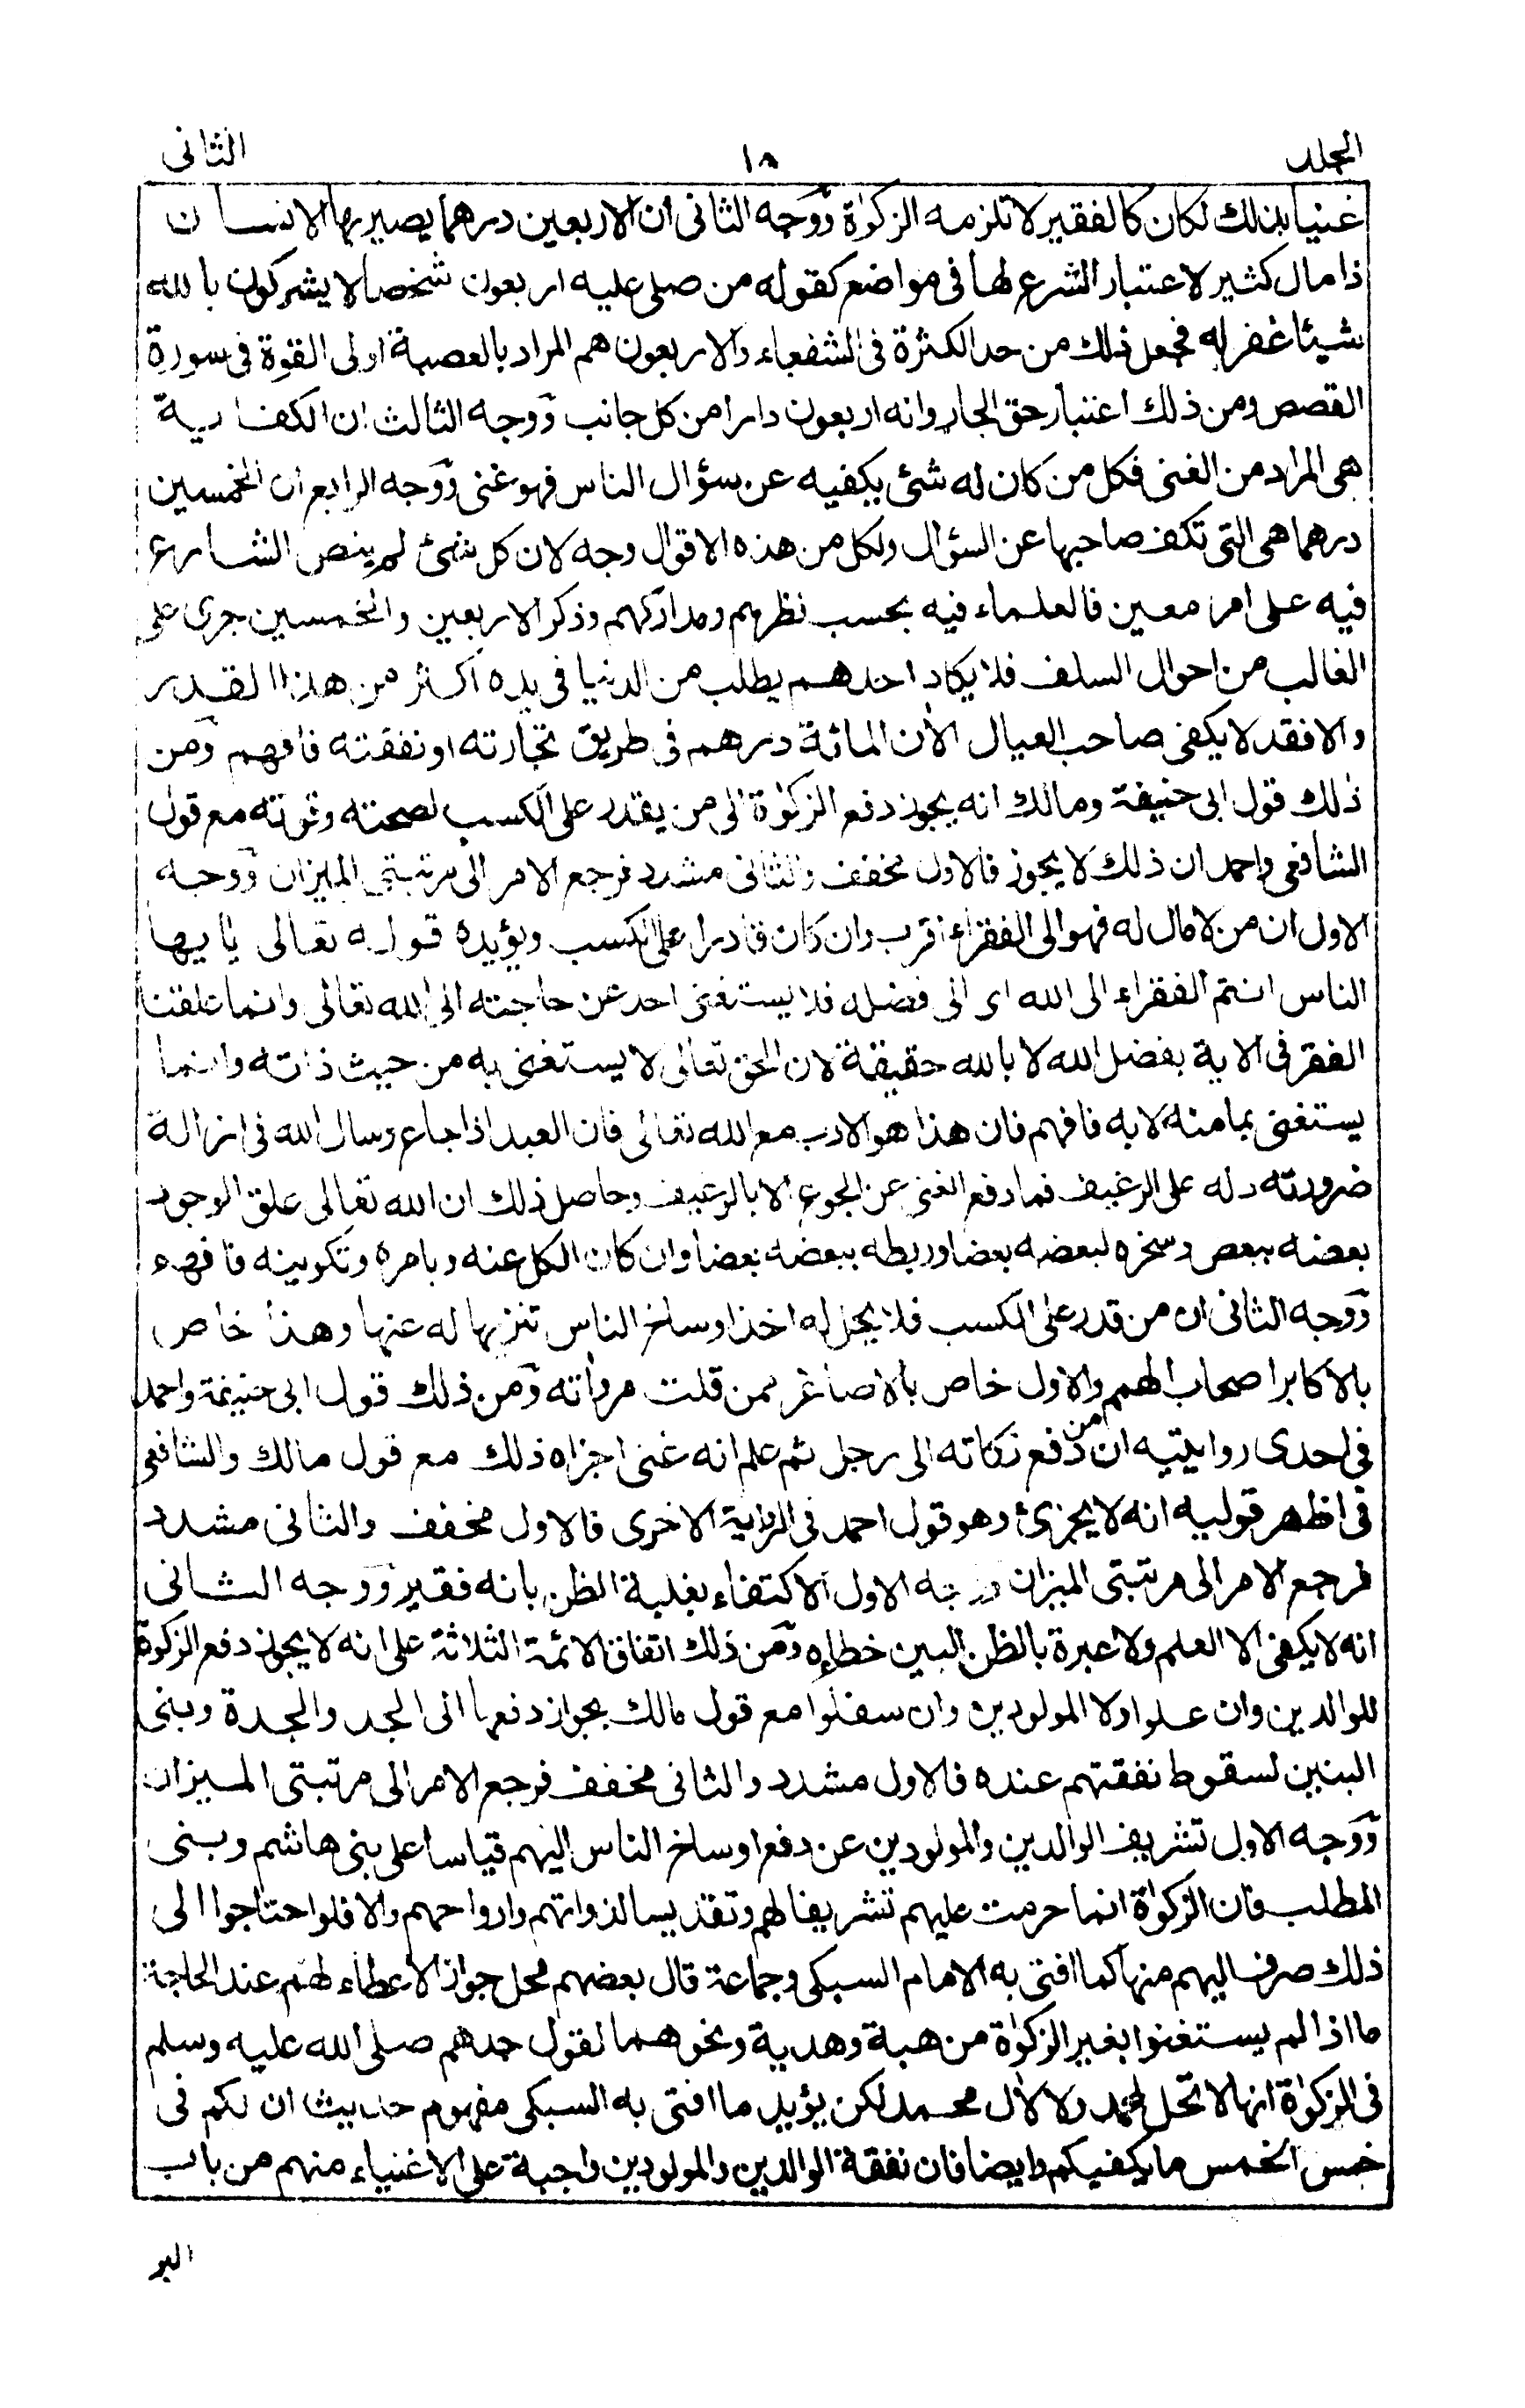 المجلد ١٨ الثانى
غنيا بذلك لكان كالفقير لا تلزمه الزكوٰة ووجه الثانى ان الاربعين درهما يصير بها الانسان
ذا مال كثير لاعتبار الشرع لها فى مواضع كقوله من صلى عليه اربعون شخصا لا يشركون بالله
شيئا غفر له فجعل ذلك من حد الكثرة فى الشفعاء والاربعون هم المراد بالعصبة اولى القوة فى سورة
القصص ومن ذلك اعتبار حق الجار وانه اربعون دارا من كل جانب ووجه الثالث ان الكفاية
هى المراد من الغنى فكل من كان له شئ يكفيه عن سؤال الناس فهو غنى ووجه الرابع ان الخمسين
درهما هى التى تكف صاحبها عن السؤال ولكل من هذه الاقوال وجه لان كل شئ لم ينص الشارع
فيه على امر معين فالعلماء فيه بحسب نظرهم ومداركهم وذكر الاربعين والخمسين جرى على
الغالب من احوال السلف فلا يكاد احدهم يطلب من الدنيا فى يده اكثر من هذا القدر
والا فقد لا يكفى صاحب العيال الآن المائة درهم فى طريق تجارته او نفقته فافهم ومن
ذلك قول ابى حنيفة ومالك انه يجوز دفع الزكوٰة الى من يقدر على الكسب لصحته وقوته مع قول
الشافعى واحمد ان ذلك لا يجوز فالاول مخفف والثانى مشدد فرجع الامر الى مرتبتى الميزان ووجه
الاول ان من لا مال له فهو الى الفقراء اقرب وان كان قادرا على الكسب ويؤيده قوله تعالى يا ايها
الناس انتم الفقراء الى الله اى الى فضله فلا يستغنى احد عن حاجته الى الله تعالى وانما علقنا
الفقر فى الاية بفضل الله لا بالله حقيقة لان الحق تعالى لا يستغنى به من حيث ذاته وانما
يستغنى بما منه لا به فافهم فان هذا هو الادب مع الله تعالى فان العبد اذا جاع وسال الله فى ازالة
ضرورته دله على الرغيف فما دفع الغنى عن الجوع الا بالرغيف وحاصل ذلك ان الله تعالى علق الوجود
بعضه ببعض وسخره لبعضه بعضا وربطه ببعضه بعضا وان كان الكل عنه وبامره وتكوينه فافهم
ووجه الثانى ان من قدر على الكسب فلا يحل له اخذ اوساخ الناس تنزيها له عنها وهذا خاص
بالاكابر اصحاب الهمم والاول خاص بالاصاغر ممن قلت مرواته ومن ذلك قول ابى حنيفة واحمد
فى احدى روايتيه ان من دفع زكاته الى رجل ثم علم انه غنى اجزاه ذلك مع قول مالك والشافعى
فى اظهر قوليه انه لا يجزئ وهو قول احمد فى الرواية الاخرى فالاول مخفف والثانى مشدد
فرجع الامر الى مرتبتى الميزان ووجه الاول الاكتفاء بغلبة الظن بانه فقير ووجه الثانى
انه لا يكفى الا العلم ولا عبرة بالظن البين خطاءه ومن ذلك اتفاق الائمة الثلاثة على انه لا يجوز دفع الزكوة
للوالدين وان علوا ولا المولودين وان سفلوا مع قول مالك بجواز دفعها الى الجد والجدة وبنى
البنين لسقوط نفقتهم عنده فالاول مشدد والثانى مخفف فرجع الامر الى مرتبتى الميزان
ووجه الاول تشريف الوالدين والمولودين عن دفع اوساخ الناس اليهم قياسا على بنى هاشم وبنى
المطلب فان الزكوٰة انما حرمت عليهم تشريفا لهم وتقديسا لذواتهم وارواحهم والا فلو احتاجوا الى
ذلك صرف اليهم منها كما افتى به الامام السبكى وجماعة قال بعضهم محل جواز الاعطاء لهم عند الحاجة
ما اذا لم يستغنوا بغير الزكوٰة من هبة وهدية ونحوهما لقول جدهم صلى الله عليه وسلم
فى الزكوٰة انها لا تحل لمحمد ولا لآل محمد لكن يؤيد ما افتى به السبكى مفهوم حديث ان لكم فى
خمس الخمس ما يكفيكم وايضا فان نفقة الوالدين والمولودين واجبة على الاغنياء منهم من باب
البر